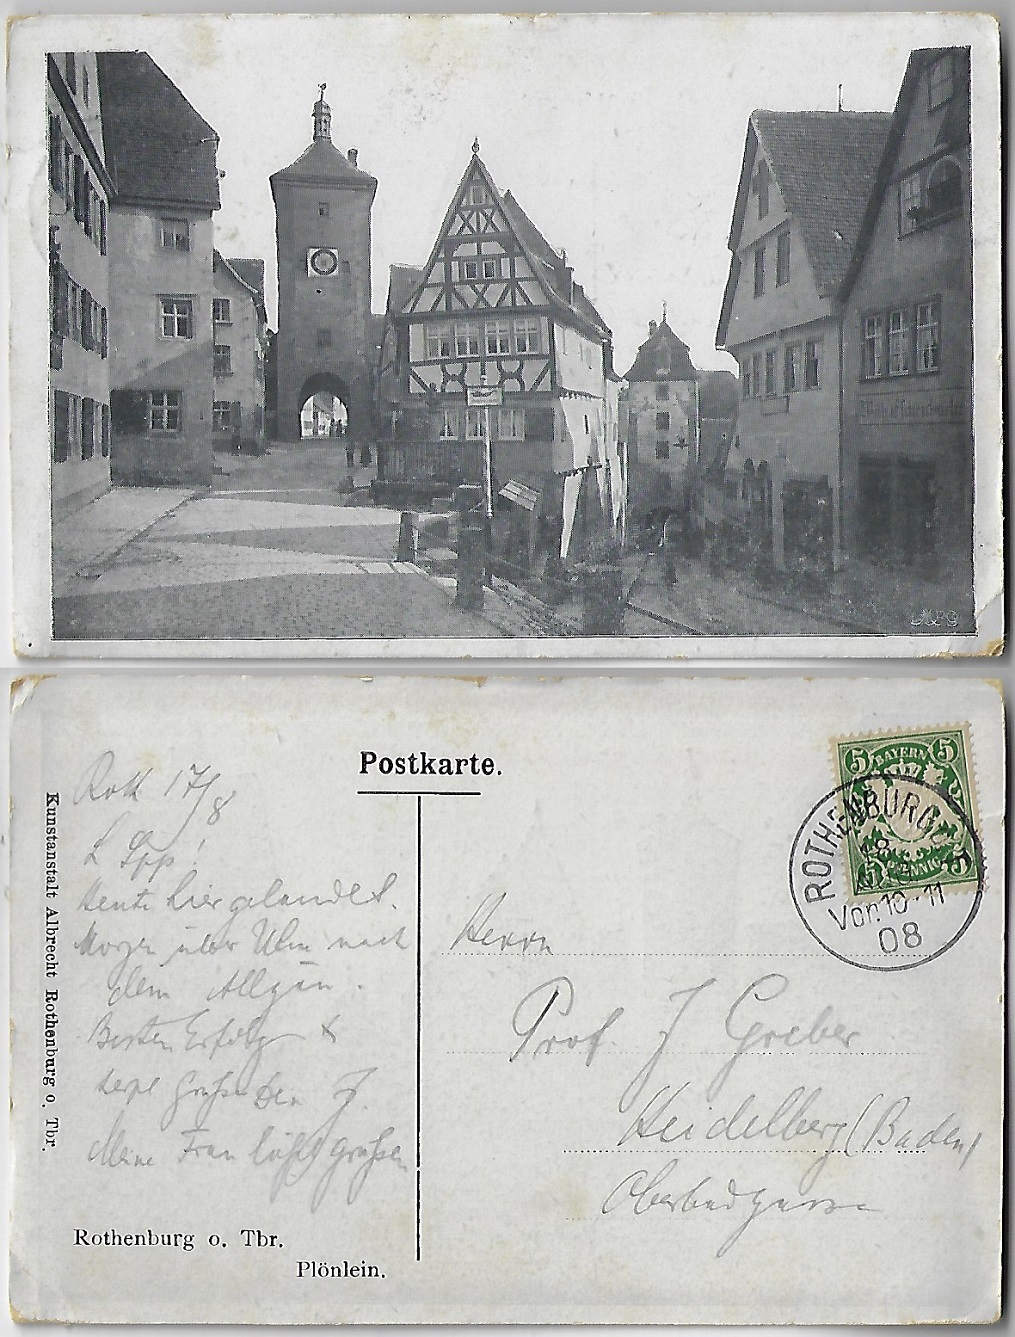 Postkarte.
Kunstanstalt Albrecht Rothenburg o. Tbr.
Roth 17/8
L
Heute hier gelandet.
Morgen über Ulm nach
dem Allgäu.
Besten Erfolg &
Meine Frau läßt grüßen
Rothenburg o. Tbr.
Plönlein.
5 BAYERN 5
5 PFENNIG 5
ROTHENBURG
18
Vor. 10-11
08
Herrn
Prof. J Greber
Heidelberg (Baden)
Oberbadgasse